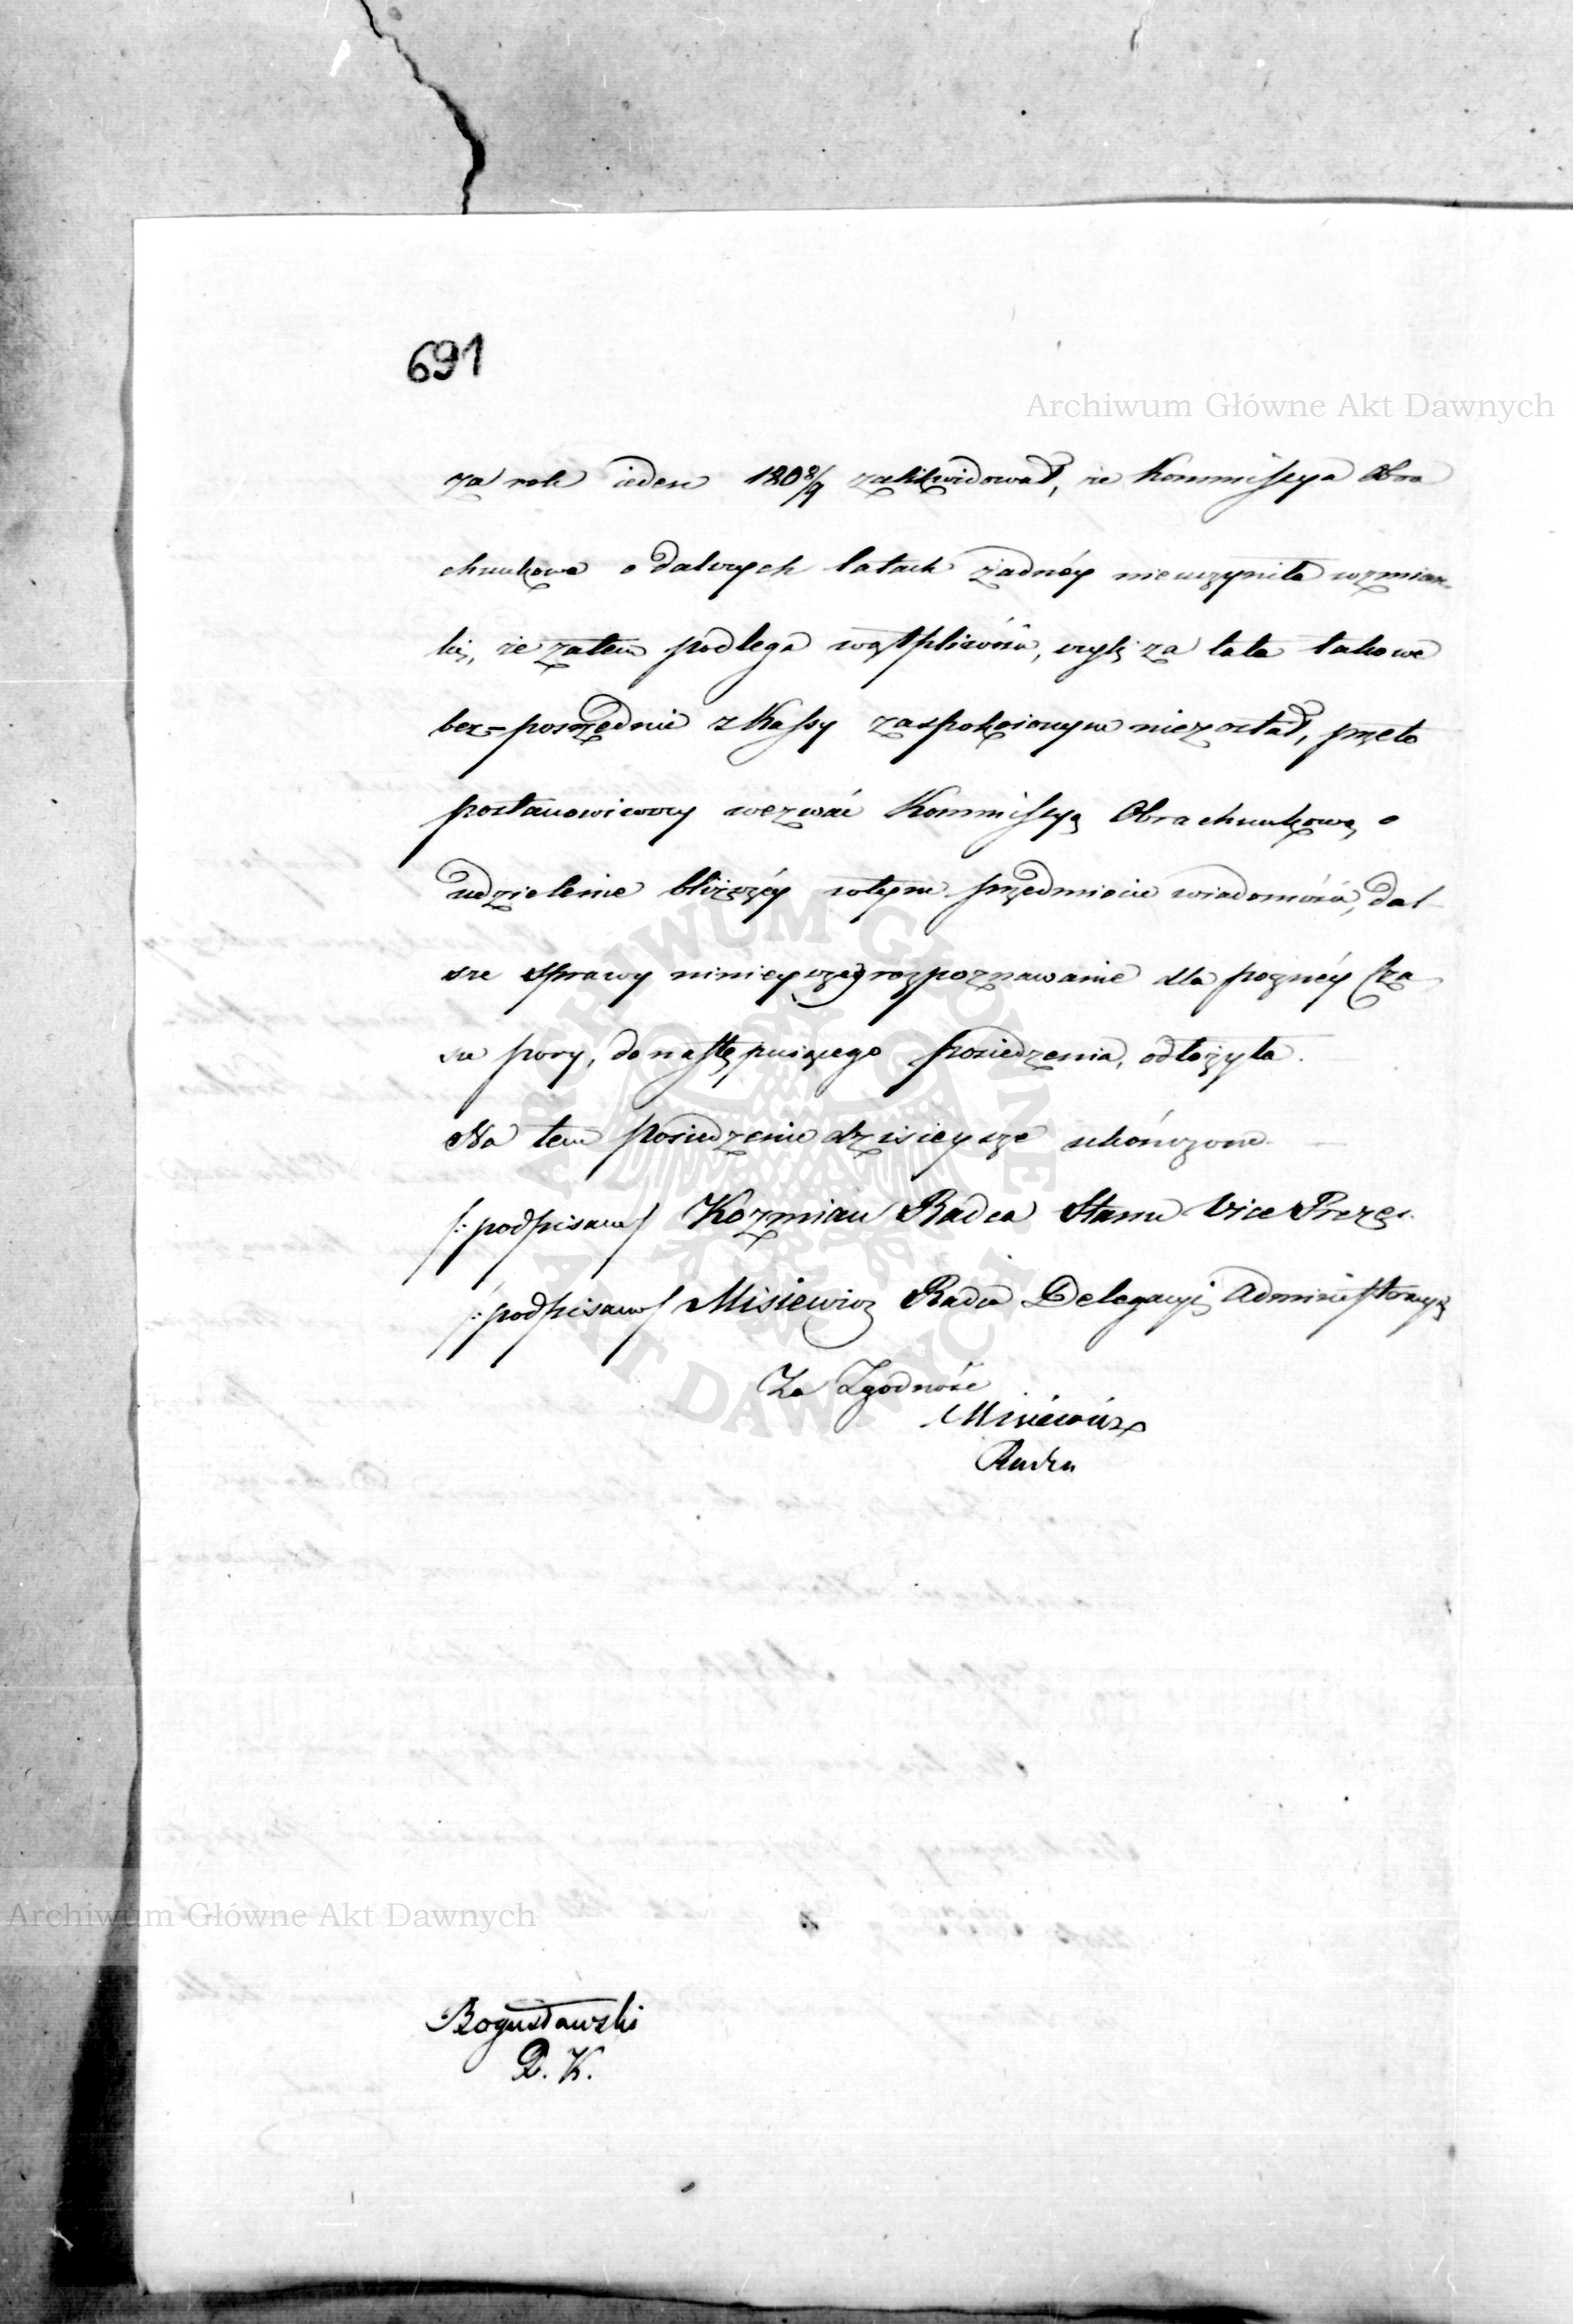 691
Archiwum Główne Akt Dawnych
za rok ieden 180 8/9 zalikwidował, że Kommissya Obra
chunkowa o dalszych latach żadnéy nieuczyniła wzmian-
ki, że zatem podlega wątpliwości, czyli za lata takowe
bez=posrzednie z Kassy zaspokoionym niezostał, przeto
postanowiwszy wezwać Kommissyą Obrachunkową o
udzielenie bliższéy wtym przedmiocie wiadomości, dal-
sze sprawy ninieyszey rozpoznawanie dla poźnéy Cza
su pory, do następuiącego posiedzenia, odłożyła.
Na tem posiedzenie dzisieysze ukończone.
/: podpisano/ Kozmian Radca Stanu Vice Prezes
/: podpisano/ Misiewicz Radca Delegacyi Administracyi
Za Zgodność
Misiewicz
Radca
Archiwum Główne Akt Dawnych
Bogusławski
D. K.
ARCHIWUM GŁÓWNE
AKT DAWNYCH